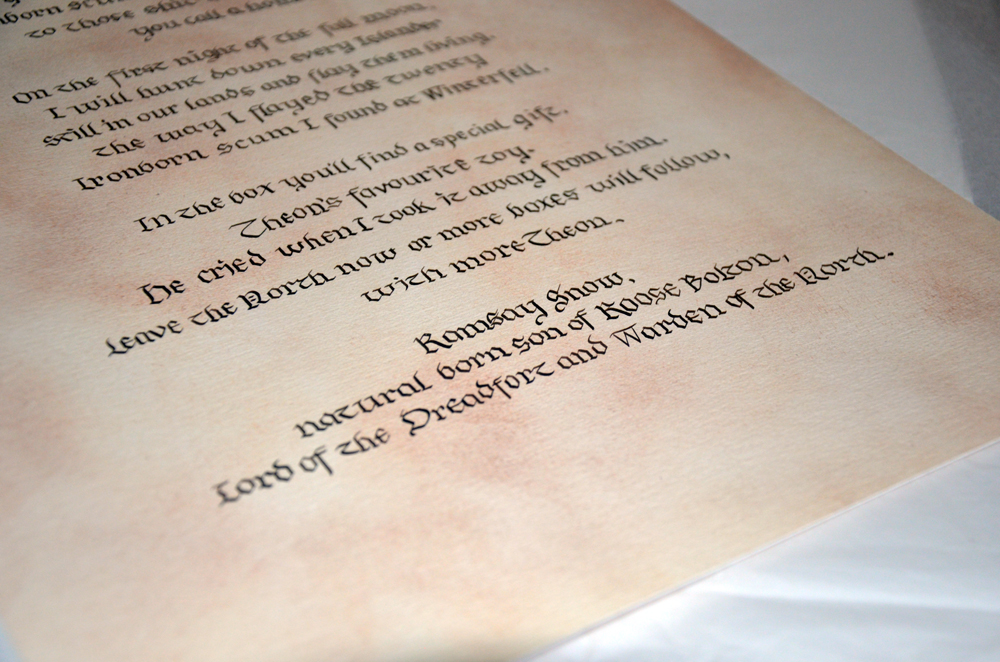 born
to those shit
you call a
On the first night of the full moon,
I will hunt down every Islander
still in our lands and flay them living.
the way I flayed the twenty
Ironborn scum I found at Winterfell.
In the box you'll find a special gift.
Theon's favourite toy.
He cried when I took it away from him.
Leave the North now or more boxes will follow,
with more Theon.
Ramsay Snow,
natural born son of Roose Bolton,
Lord of the Dreadfort and Warden of the North.